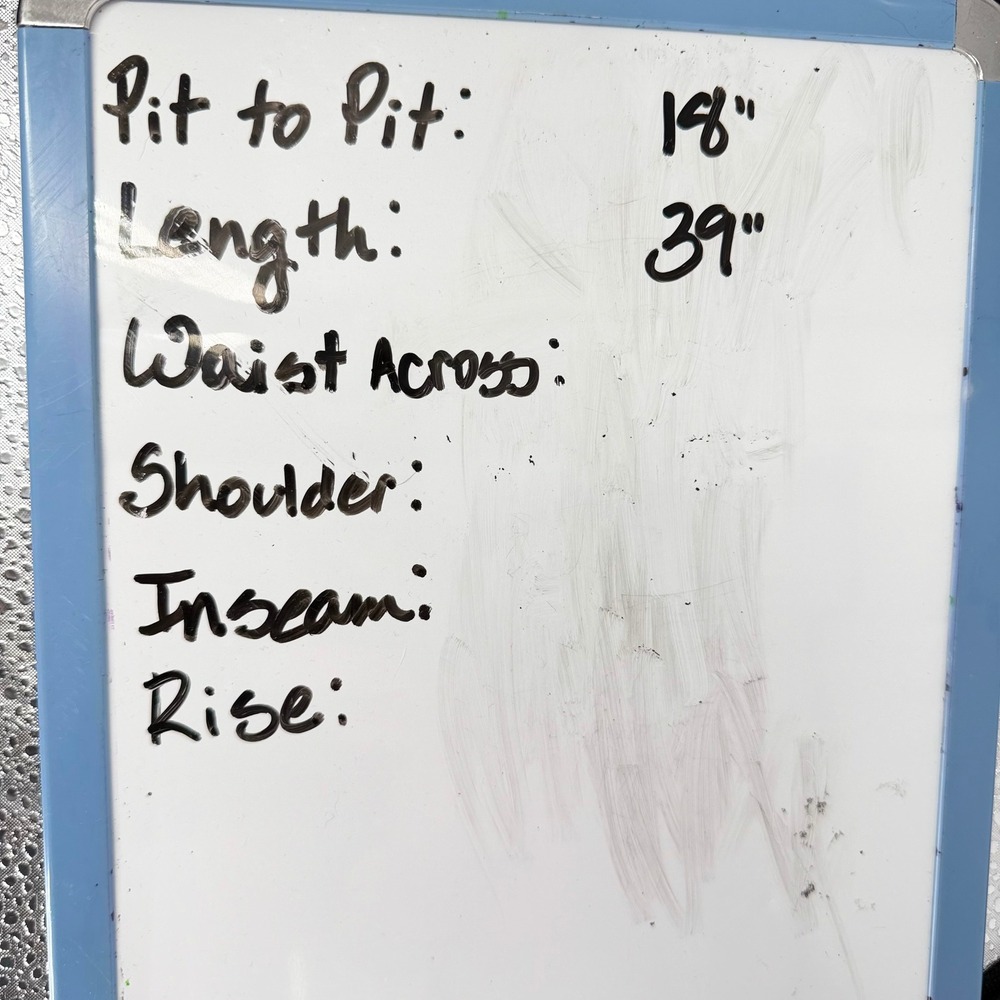 Pit to Pit: 18"
Length: 39"
Waist Across:
Shoulder:
Inseam:
Rise: